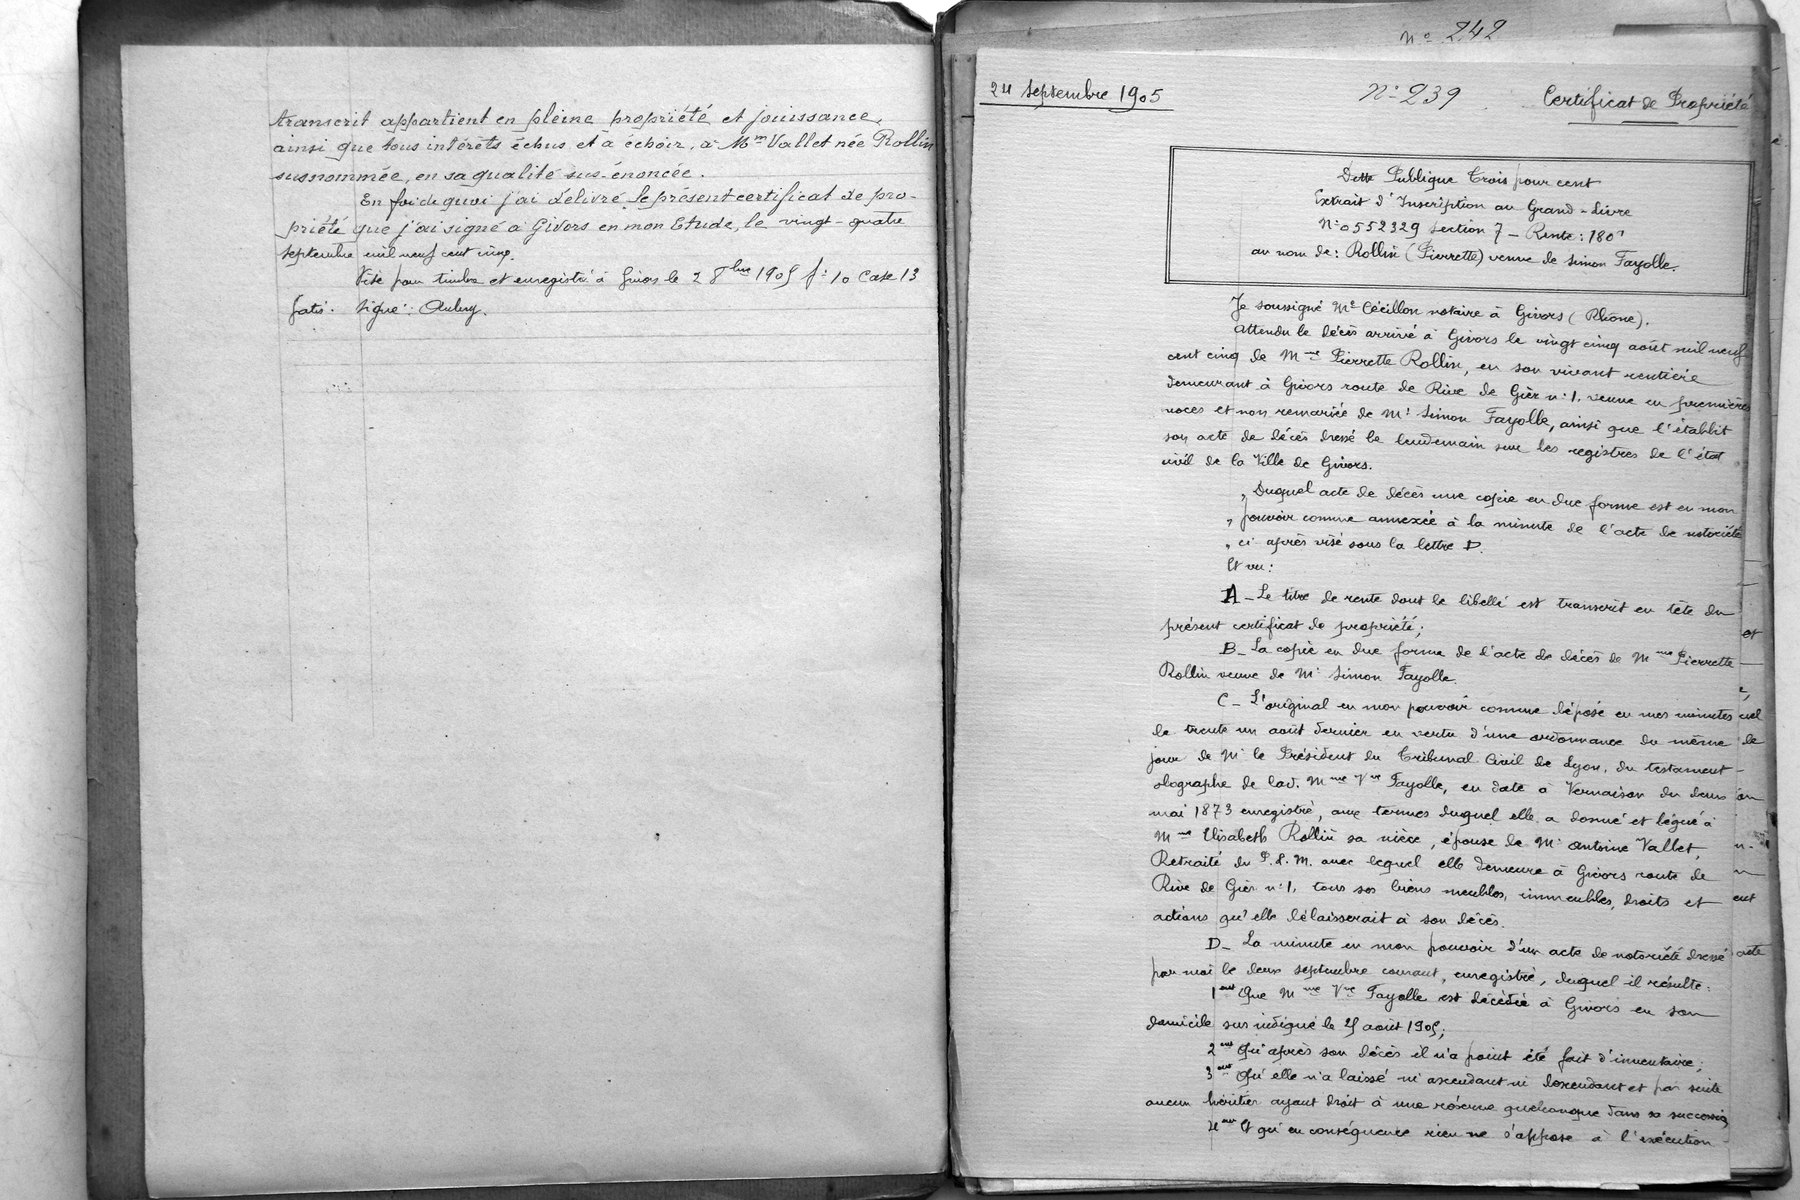 transcrit appartient en pleine propriété et jouissance,
ainsi que tous intérêts échus et à échoir, à Mm Vallet née Rollin
susnommée, en sa qualité sus-énoncée.
En foi de quoi j'ai délivré le présent certificat de pro-
priété que j'ai signé à Givors en mon Etude, le vingt-quatre
septembre mil neuf cent cinq.
Visé pour timbre et enregistré à Givors le 2 8bre 1905 f: 10 Case 13
gatis. Signé: Aubry.
No 242
24 Septembre 1905
No 239
Certificat de Propriété
Dette Publique Trois pour cent
Extrait d'Inscription au Grand-Livre
No 0552329 Section 7 - Rente: 180f
au nom de: Rollin (Pierrette) veuve de Simon Fayolle.
Je soussigné Me Cécillon notaire à Givors (Rhône).
Attendu le décès arrivé à Givors le vingt cinq août mil neuf
cent cinq de Mme Pierrette Rollin, en son vivant rentière
demeurant à Givors route de Rive de Gier n:1, veuve en premières
noces et non remariée de Mr Simon Fayolle, ainsi que l'établit
son acte de décès dressé le lendemain sur les registres de l'état
civil de la Ville de Givors.
„ Duquel acte de décès une copie en due forme est en mon
„ pouvoir comme annexée à la minute de l'acte de notoriété
„ ci après visé sous la lettre D.
Et vu:
A - Le titre de rente dont le libellé est transcrit en tête du
présent certificat de propriété;
B - La copie en due forme de l'acte de décès de Mme Pierrette
Rollin veuve de Mr Simon Fayolle.
C - L'original en mon pouvoir comme déposé en mes minutes
le trente un août dernier en vertu d'une ordonnance du même
jour de Mr le Président du Tribunal Civil de Lyon, du testament
olographe de lad. Mme Vve Fayolle, en date à Vernaison du deux
mai 1873 enregistré, aux termes duquel elle a donné et légué à
Mme Elisabeth Rollin sa nièce, épouse de Mr Antoine Vallet,
Retraité du P.L.M. avec lequel elle demeure à Givors route de
Rive de Gier n:1, tous ses biens meubles, immeubles, droits et
actions qu'elle délaisserait à son décès.
D - La minute en mon pouvoir d'un acte de notoriété dressé
par moi le deux septembre courant, enregistré, duquel il résulte:
1ent Que Mme Vve Fayolle est décédée à Givors en son
domicile sus indiqué le 25 août 1905;
2ent Qu'après son décès il n'a point été fait d'inventaire;
3ent Qu'elle n'a laissé ni ascendant ni descendant et par suite
aucun héritier ayant droit à une réserve quelconque dans sa succession
4ent Et qu'en conséquence rien ne s'oppose à l'exécution